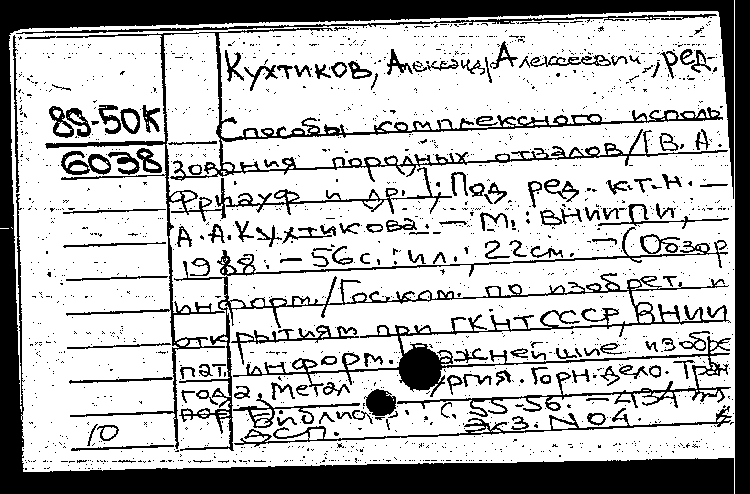 Кухтиков, Александр Алексеевич, ред.
89-50К
6038
Способы комплексного исполь
зования породных отвалов/[В. А.
Фриауф и др.]; Под ред. к.т.н. —
А.А.Кухтикова. — М.: ВНИИПИ,
1988. – 56с.: ил.; 22см. – (Обзор
информ./Гос.ком. по изобрет. и
открытиям при ГКНТ СССР, ВНИИ
пат. информ. Важнейшие изобре
года, металлургия. Горн. дело. Тран
пор Библиогр.: с. 55-56. – 434
ДСП. Экз. N 04.
10